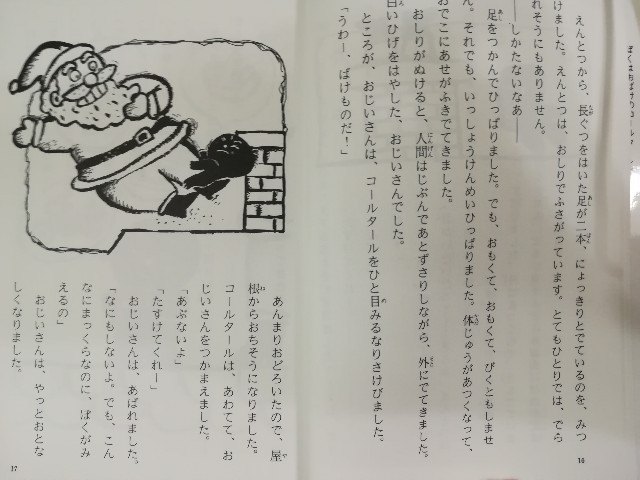 ぼくはおばけのコーレ
えんとつから、長ぐつをはいた足が二本、にょっきりとでているのを、みつ
けました。えんとつは、おしりでふさがっています。とてもひとりでは、でら
れそうにもありません。
――しかたないなあ――
足をつかんでひっぱりました。でも、おもくて、おもくて、びくともしませ
ん。それでも、いっしょうけんめいひっぱりました。体じゅうがあつくなって、
おでこにあせがふきでてきました。
おしりがぬけると、人間はじぶんであとずさりしながら、外にでてきました。
白いひげをはやした、おじいさんでした。
ところが、おじいさんは、コールタールをひと目みるなりさけびました。
「うわー、ばけものだ！」
16
あんまりおどろいたので、屋
根からおちそうになりました。
コールタールは、あわてて、お
じいさんをつかまえました。
「あぶないよ」
「たすけてくれー」
おじいさんは、あばれました。
「なにもしないよ。でも、こん
なにまっくらなのに、ぼくがみ
えるの」
おじいさんは、やっとおとな
しくなりました。
17